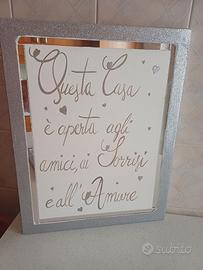 Questa Casa
è aperta agli
amici, ai Sorrisi
e all'Amore
subito